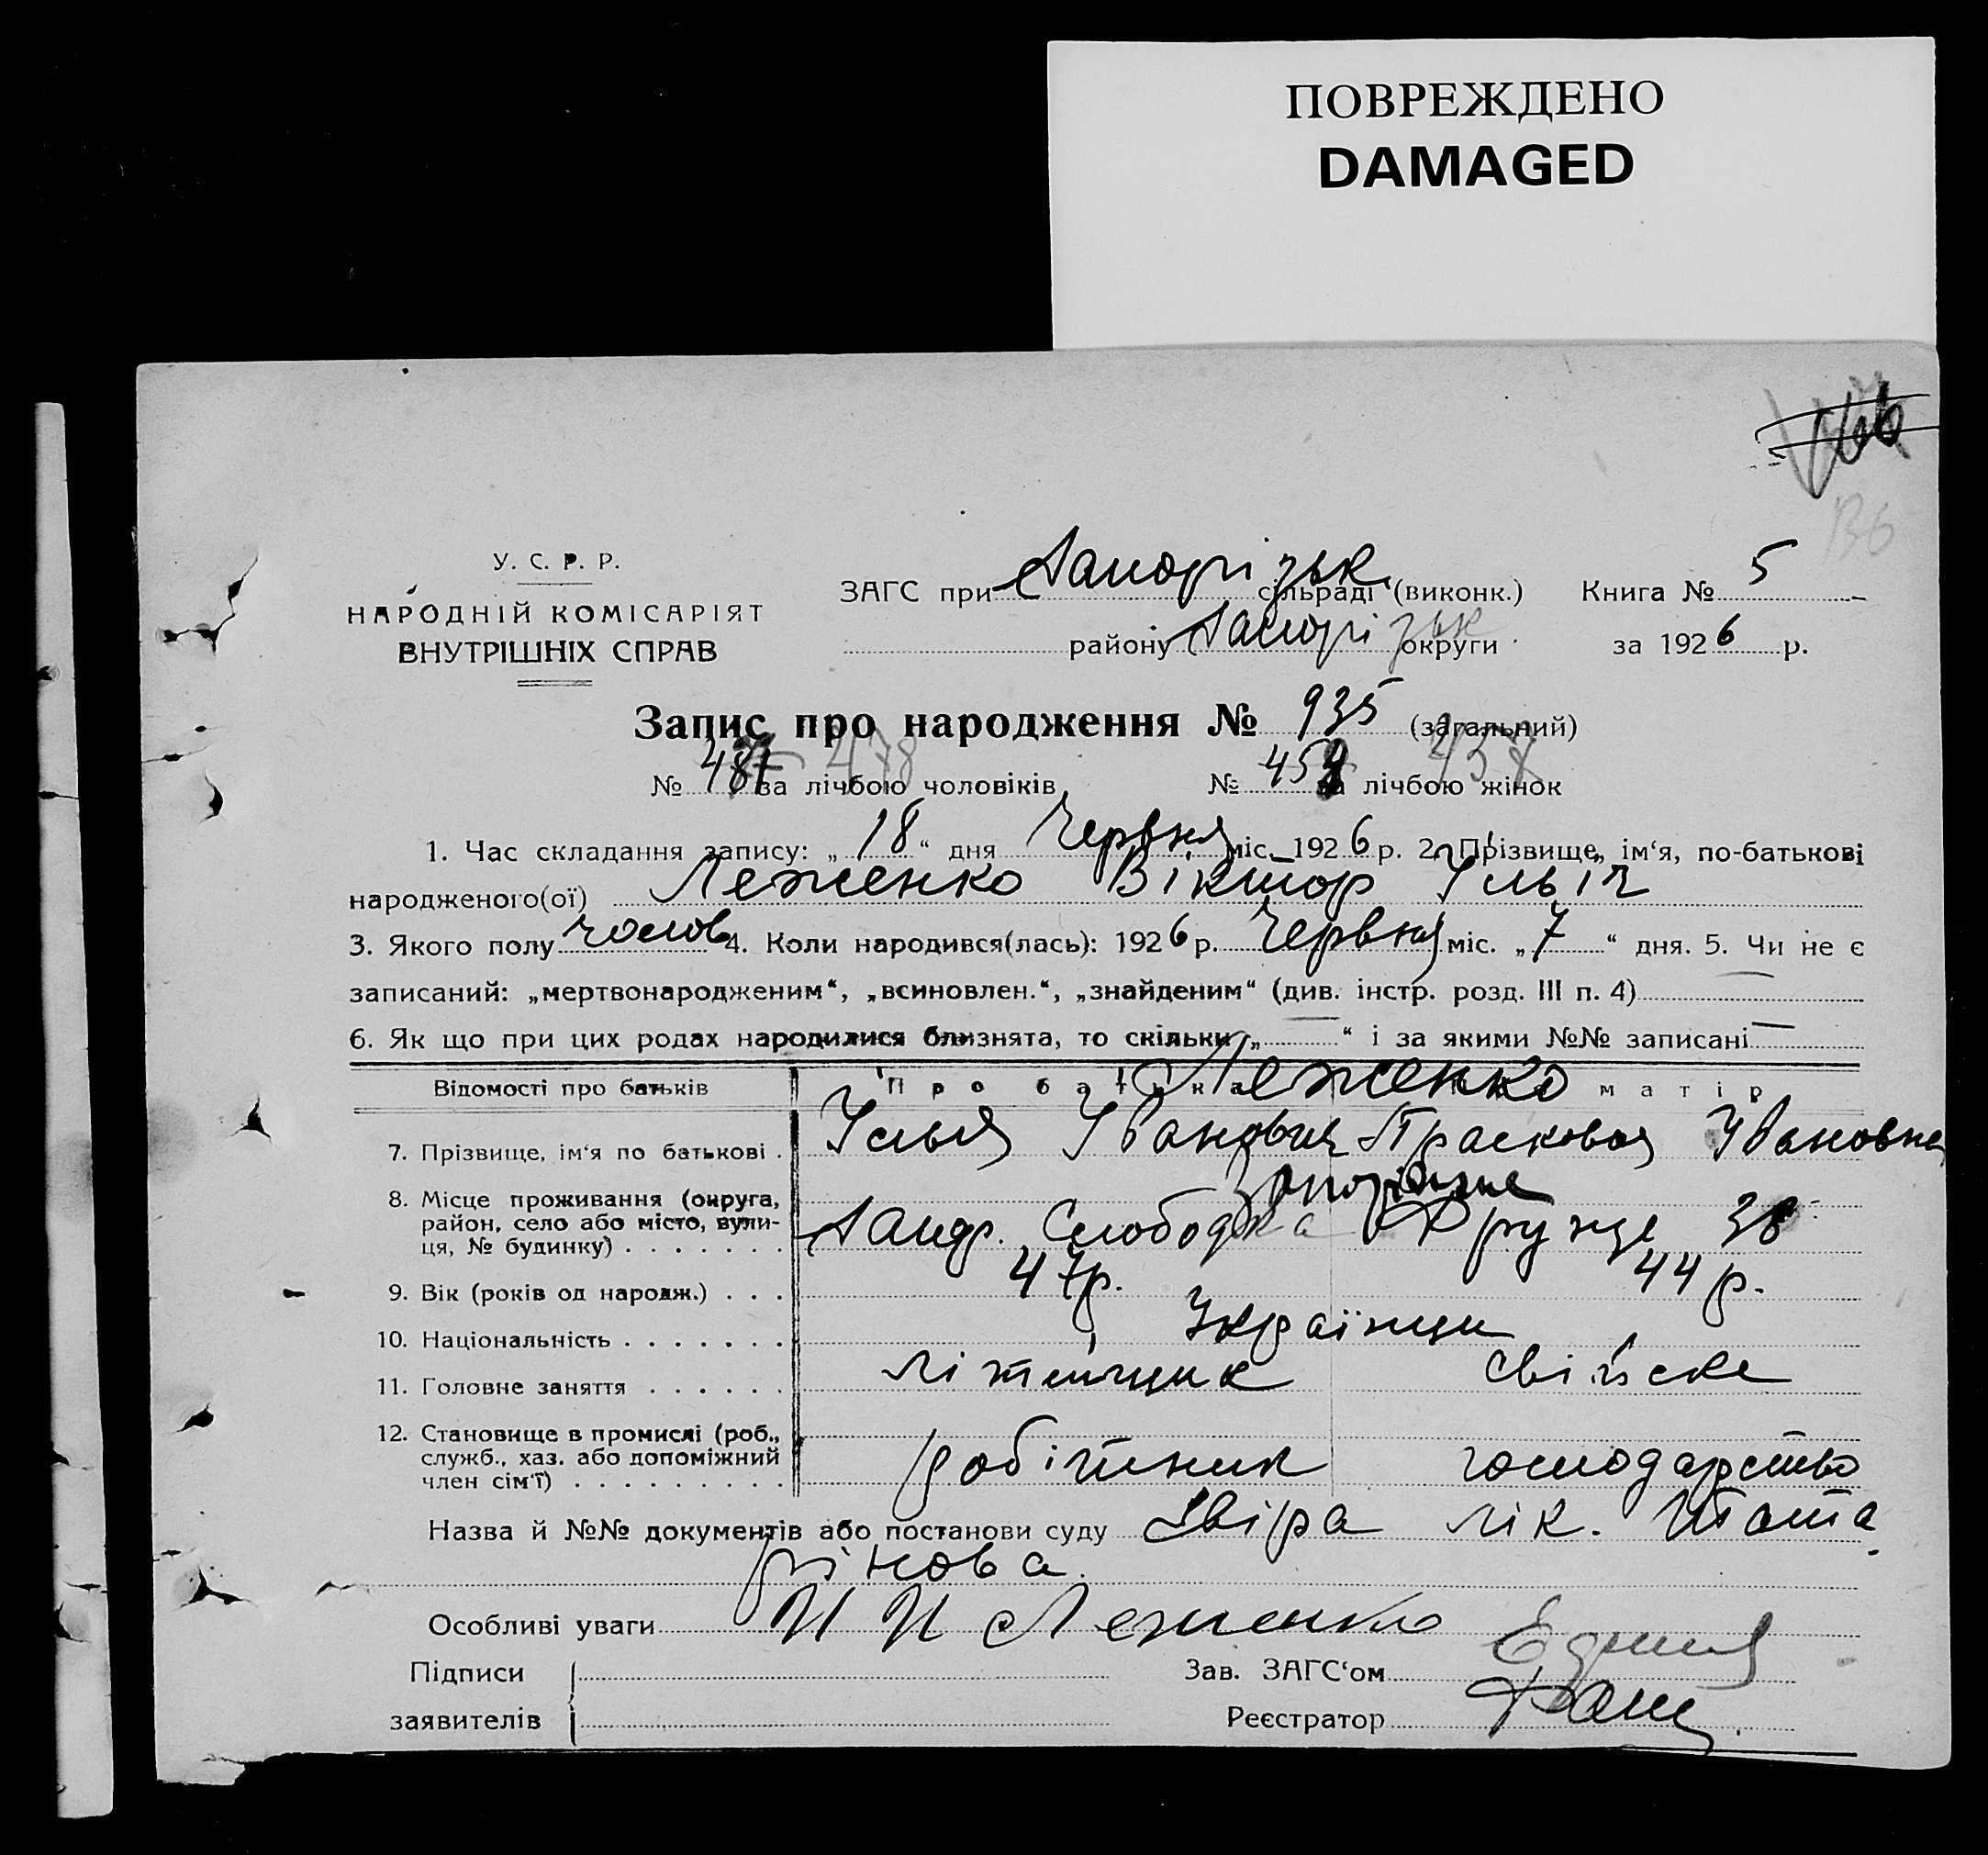 ПОВРЕЖДЕНО
DAMAGED
У. С. Р. Р.
НАРОДНІЙ КОМІСАРІЯТ
ВНУТРІШНІХ СПРАВ
ЗАГС при Запорізьк. сільраді (виконк.) Книга № 5
району Запорізьк округи за 1926 р.
Запис про народження № 935 (загальний)
№ за лічбою чоловіків 478 № за лічбою жінок 457
1. Час складання запису: „18“ дня Червня міс. 1926 р. 2. Прізвище, ім‘я, по-батькові
народженого(ої) Леженко Віктор Ільіч
3. Якого полу чолов 4. Коли народився(лась): 1926 р. Червня міс. „7“ дня. 5. Чи не є
записаний: „мертвонародженим“, „всиновлен.“, „знайденим“ (див. інстр. розд. III п. 4) —
6. Як що при цих родах народилися близнята, то скільки „—“ і за якими №№ записані —
Відомості про батьків Про батька матір
Леженко
7. Прізвище, ім‘я по батькові . Ілья Іванович Прасковья Івановна
8. Місце проживання (округа, район, село або місто, вулиця, № будинку) . . . . . . . Запоріжжє
Слободка Фрунзе 38
9. Вік (років од народж.) . . . 47р. 44 р.
10. Національність . . . . . . . Українци
11. Головне заняття . . . . . . Літейщик свійске
12. Становище в промислі (роб., служб., хаз. або допоміжний член сім‘ї) . . . . . . . . . робітник господарство
Назва й №№ документів або постанови суду лік.
Особливі уваги И И Леженко
Підписи
заявителів
Зав. ЗАГС‘ом
Реєстратор